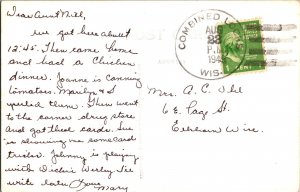 Dear Aunt Mill,
We got here about
12:45. Then came home
and had a Chicken
dinner. Joanne is canning
tomatoes. Marilyn & I
peeled them. Then went
to the corner drug store
and got these cards. Sue
is showing me some card
tricks. Johnny is playing
with Dickie Verley. Will
write later Love
Mary
COMBINED L
AUG
P.M.
194
WIS.
Mrs. A. C. Uhl
6 E. Pag St.
Wisc.